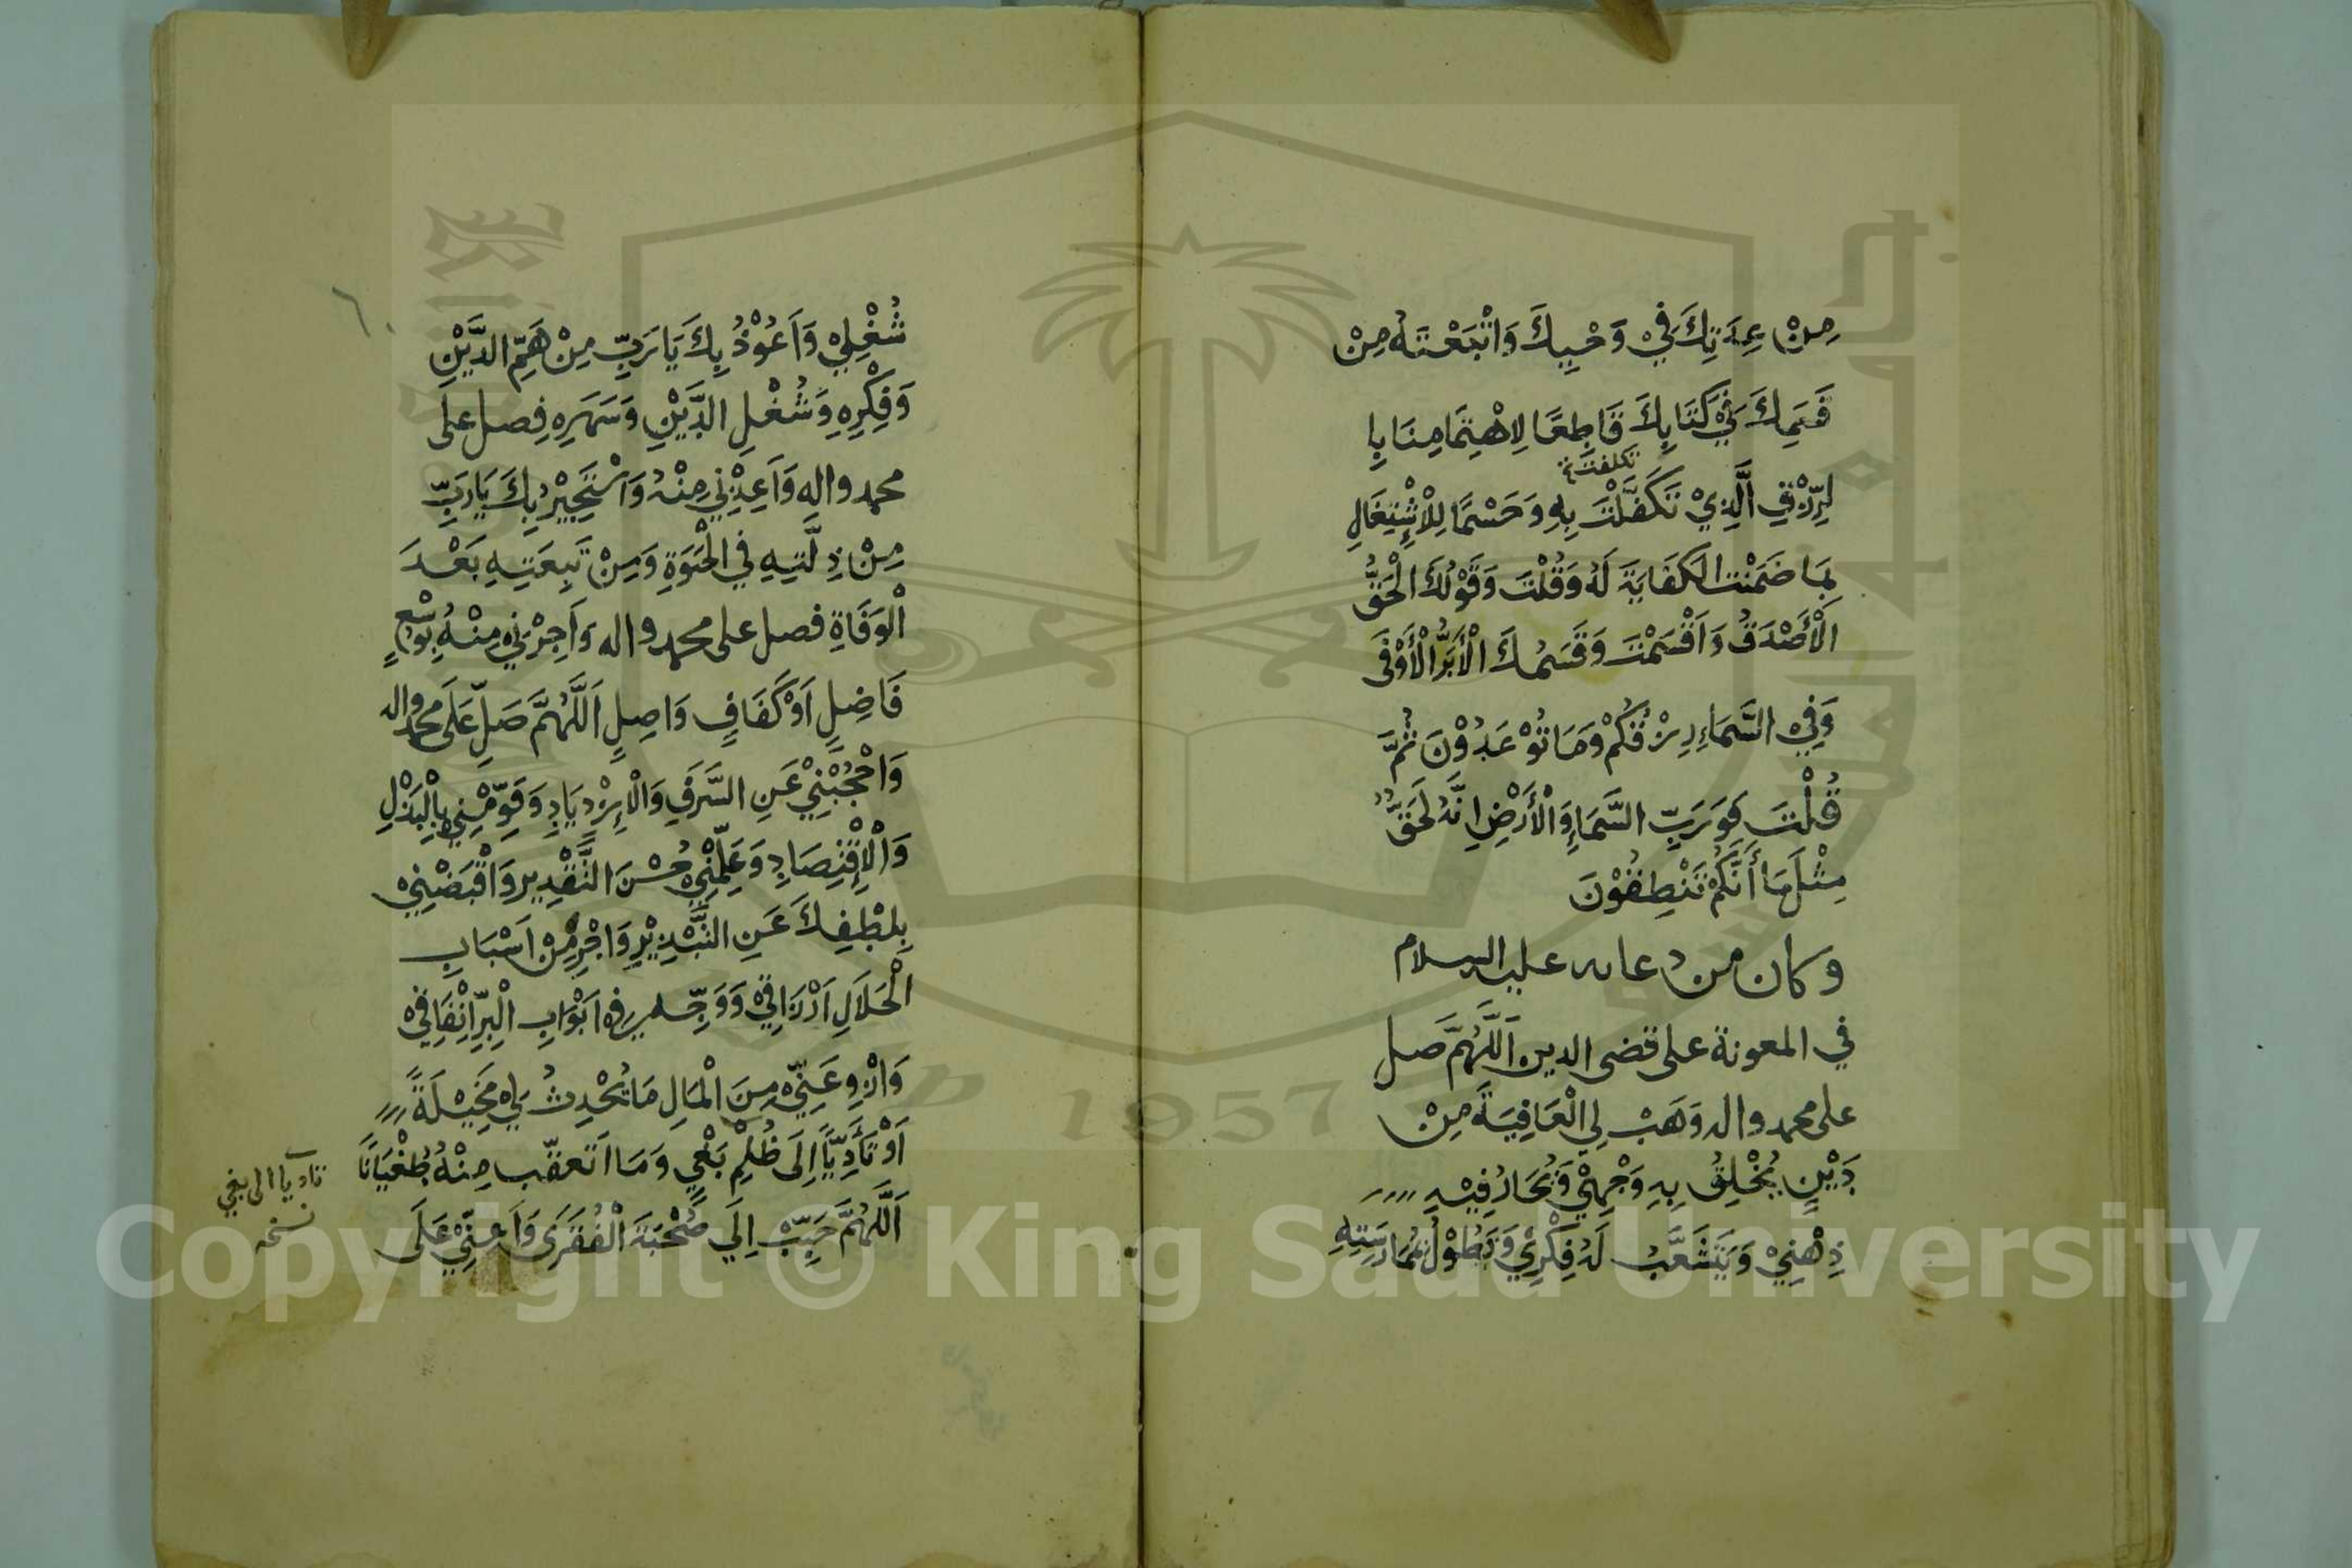 مِنْ عِدَتِكَ فِيْ وَحْيِكَ وَاَتْبَعْتَهُ مِنْ
قَسَمِكَ فِيْ كِتَابِكَ قَاطِعًا لِاهْتِمَامِنَا بِا
تكلفت
لرِّزْقِ الَّذِيْ تَكَفَّلْتَ بِهِ وَحَسْمًا لِلْاِشْتِغَالِ
بِمَا ضَمَنْتَ الْكَفَايَةَ لَهُ وَقُلْتَ وَقَوْلُكَ الْحَقُّ
الْأَصْدَقُ وَاَقْسَمْتَ وَقَسَمُكَ الْأَبَرُّ الْأَوْفَى
وَفِيْ السَّمَاءِ رِزْقُكُمْ وَمَا تُوْعَدُوْنَ ثُمَّ
قُلْتَ فَوَرَبِّ السَّمَاءِ وَالْأَرْضِ اِنَّهُ لَحَقٌّ
مِثْلَ مَا أَنَّكُمْ تَنْطِقُوْنَ
وكان من دعائه عليه السلام
في المعونة على قضى الدين اَللَّهُمَّ صَل
على محمد واله وَهَبْ لِي الْعَافِيَةَ مِنْ
دَيْنٍ يُخْلِقُ بِهِ وَجْهِيْ وَيُحَارُ فِيْهِ
ذِهْنِيْ وَيَتَشَعَّبُ لَهُ فِكْرِيْ وَيَطُوْلُ بِمُمَارَسَتِهِ
شُغْلِيْ وَاَعُوْذُ بِكَ يَا رَبِّ مِنْ هَمِّ الدَّيْنِ
وَفِكْرِهِ وَشُغْلِ الدَّيْنِ وَسَهَرِهِ فِصل على
محمد واله وَاَعِذْنِيْ مِنْهُ وَاَسْتَجِيْرُ بِكَ يَا رَبِّ
مِنْ ذِلَّتِهِ فِي الْحَيٰوةِ وَمِنْ تَبِعَتِهِ بَعْدَ
الْوَفَاةِ فصل على محمد واله وَاَجِرْنِيْ مِنْهُ بِوُسْعٍ
فَاضِلٍ اَوْ كَفَافٍ وَاصِلٍ اَللَّهُمَّ صَلِّ عَلَى محمد واله
وَاحْجُبْنِيْ عَنِ السَّرَفِ وَالْاِزْدِيَادِ وَقَوِّمْنِيْ بِالْبَذْلِ
وَالْاِقْتِصَادِ وَعَلِّمْنِيْ حُسْنَ التَّقْدِيرِ وَاقْبِضْنِيْ
بِلُطْفِكَ عَنِ التَّبْذِيْرِ وَاجْرِ مِنْ اَسْبَابِ
الْحَلَالِ اَرْزَاقِيْ وَوَجِّهْ فِيْ اَبْوَابِ الْبِرِّ اِنْفَاقِيْ
وَازْوِ عَنِّيْ مِنَ الْمَالِ مَا يُحْدِثُ لِيْ مَخِيْلَةً
اَوْ تَأَدِّيًا اِلَى ظُلْمِ بَغْيٍ وَمَا اَتَعَقَّب مِنْهُ طُغْيَانًا
اَللَّهُمَّ حَبِّبْ اِلَيَّ صُحْبَةَ الْفُقَرَى وَاَعِنِّيْ عَلَى
تاديا الى بغي
نسخه
Copyright © King Saud University
1957